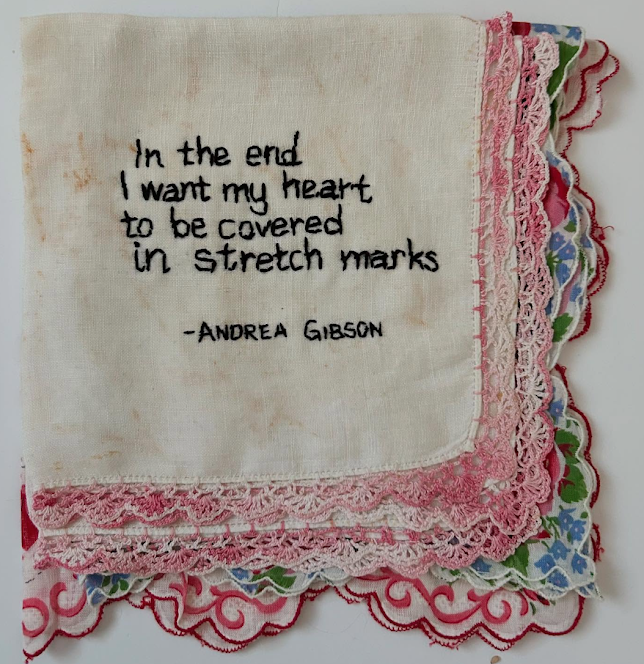 In the end
I want my heart
to be covered
in stretch marks
-ANDREA GIBSON